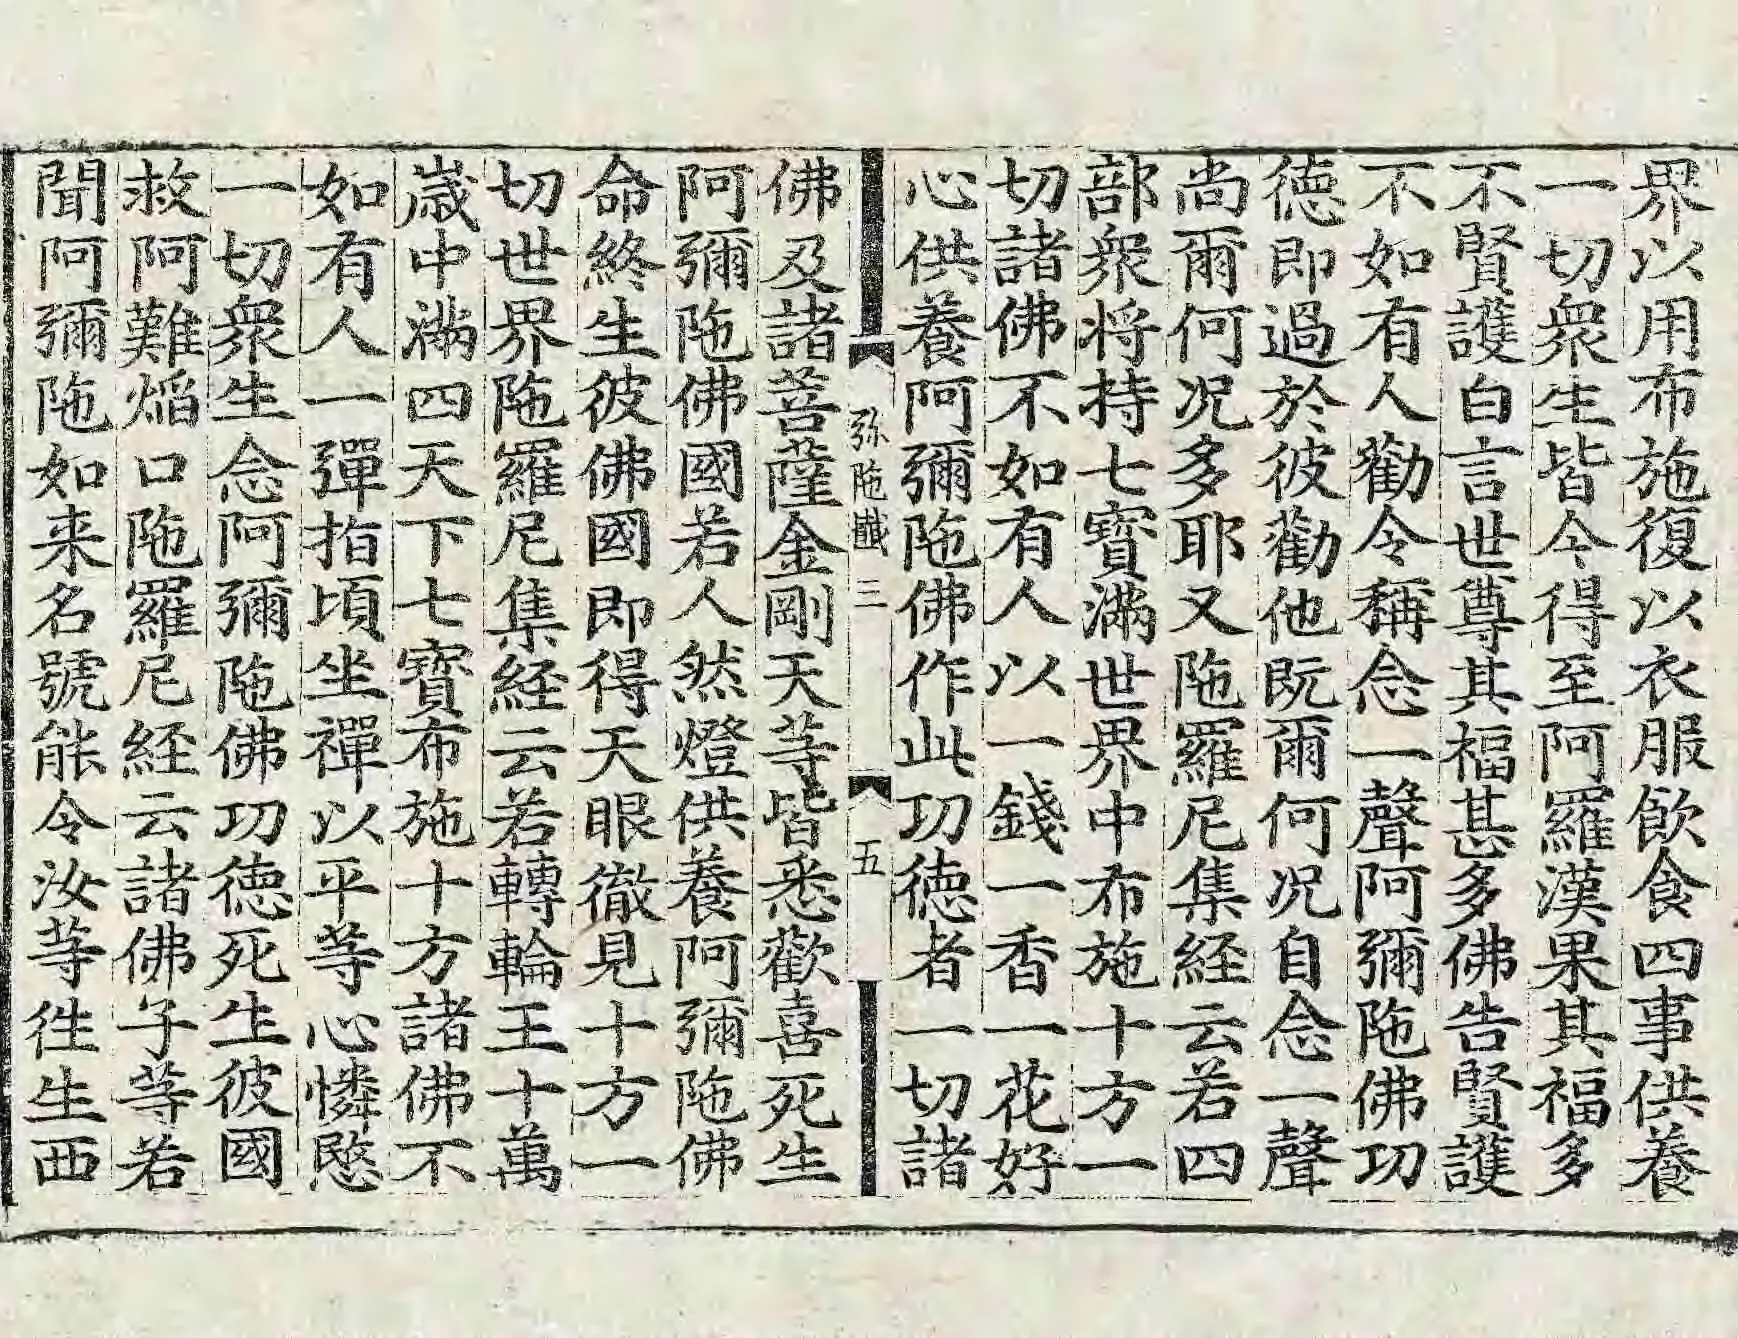 界以用布施復以衣服飲食四事供養
一切衆生皆令得至阿羅漢果其福多
不賢護白言世尊其福甚多佛告賢護
不如有人勸令稱念一聲阿彌陁佛功
德即過於彼勸他既爾何况自念一聲
尚爾何况多耶又陁羅尼集経云若四
部衆将持七寶滿世界中布施十方一
切諸佛不如有人以一錢一香一花好
心供養阿彌陁佛作此功德者一切諸
弥陁懺三
五
佛及諸菩薩金剛天等皆悉歡喜死生
阿彌陁佛國若人然燈供養阿彌陁佛
命終生彼佛國即得天眼徹見十方一
切世界陁羅尼集経云若轉輪王十萬
歳中滿四天下七寶布施十方諸佛不
如有人一彈指頃坐禪以平等心憐愍
一切衆生念阿彌陁佛功德死生彼國
救阿難焰口陁羅尼経云諸佛子等若
聞阿彌陁如来名號能令汝等徃生西